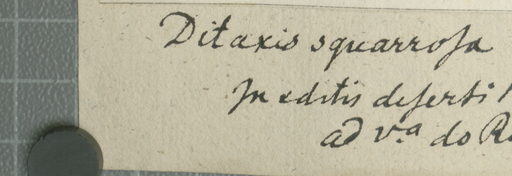 Ditaxis squarrosa
In editis deserti
ad v.a do R